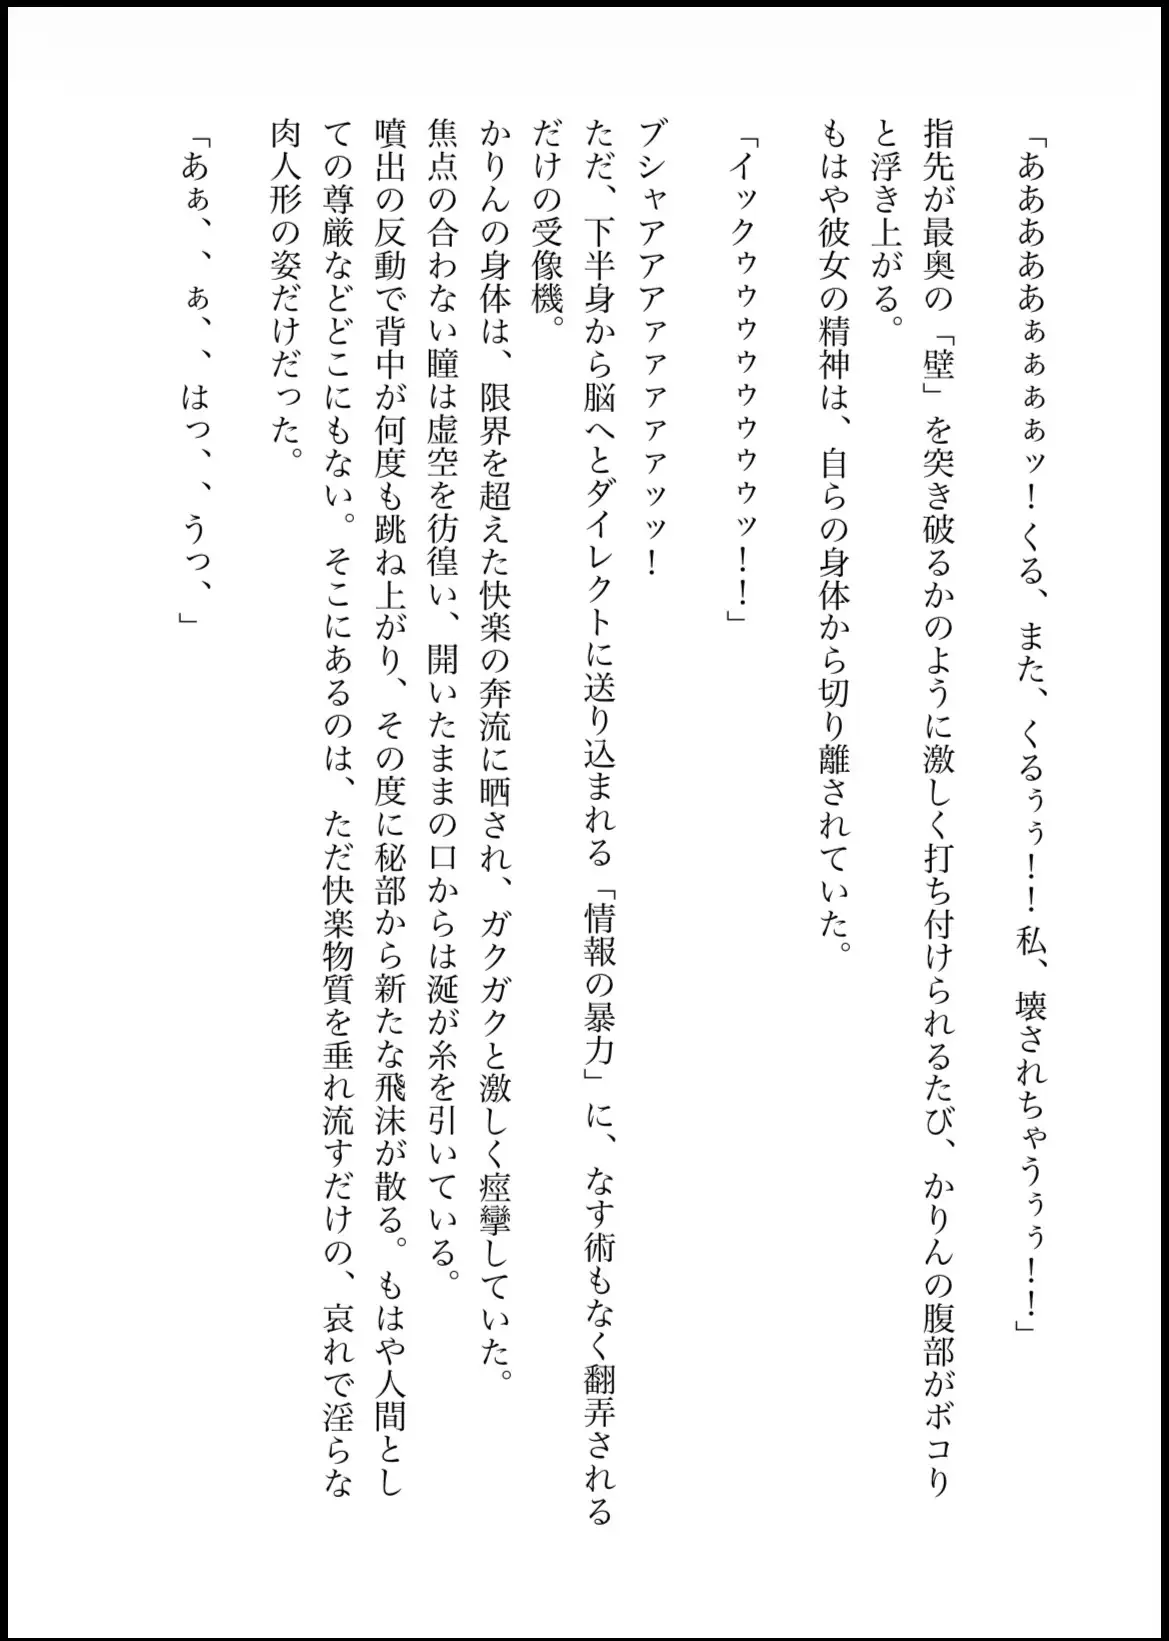 「ああああぁぁぁぁッ！くる、また、くるぅぅ！！私、壊されちゃうぅぅ！！」
指先が最奥の「壁」を突き破るかのように激しく打ち付けられるたび、かりんの腹部がボコり
と浮き上がる。
もはや彼女の精神は、自らの身体から切り離されていた。
「イックゥゥゥゥゥゥゥッ！！」
ブシャアアアァァァァァッッ！
ただ、下半身から脳へとダイレクトに送り込まれる「情報の暴力」に、なす術もなく翻弄される
だけの受像機。
かりんの身体は、限界を超えた快楽の奔流に晒され、ガクガクと激しく痙攣していた。
焦点の合わない瞳は虚空を彷徨い、開いたままの口からは涎が糸を引いている。
噴出の反動で背中が何度も跳ね上がり、その度に秘部から新たな飛沫が散る。もはや人間とし
ての尊厳などどこにもない。そこにあるのは、ただ快楽物質を垂れ流すだけの、哀れで淫らな
肉人形の姿だけだった。
「あぁ、、ぁ、、はっ、、うっ、」